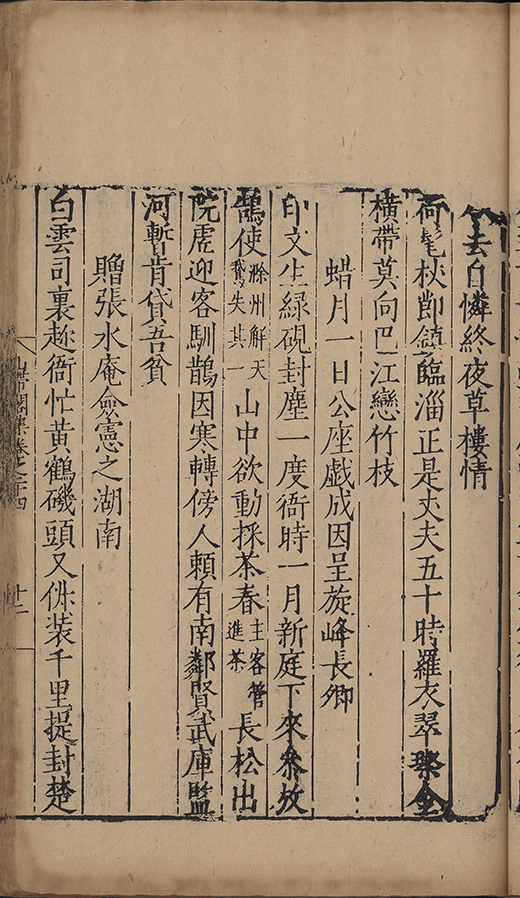 去自憐終夜草樓情
荷髦秋節鎮臨淄正是丈夫五十時羅衣翠琹金
橫帶莫向巴江戀竹枝
蜡月一日公座戲成因呈旋峰長卿
印文生綠硯封塵一度衙時一月新庭下來叅放
鵠使滁州觧天鵞失其一山中欲動採茶春主客管進茶長松出
院處迎客馴鵲因寒轉傍人頼有南鄰賢武庫監
河暫肯貸吾貧
贈張水庵僉憲之湖南
白雲司裏趂衙忙黃鶴磯頭又俶装千里提封楚
閣集卷之十四
十二